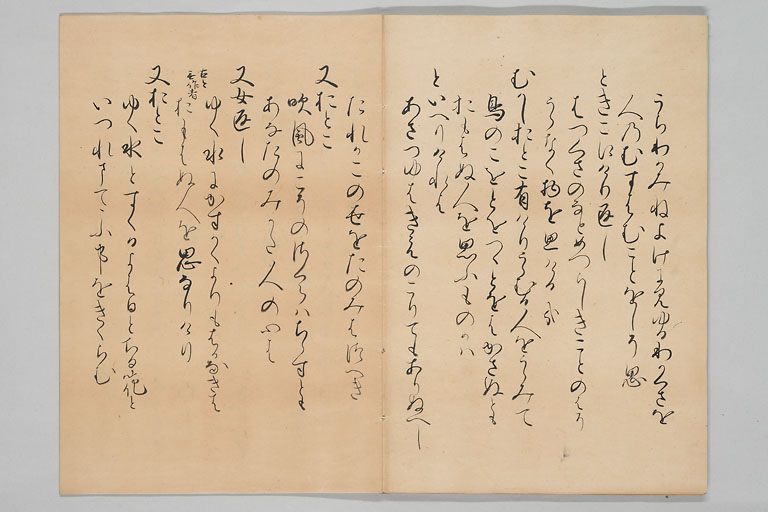 うらわかみねよけに見ゆるわかくさを
人のむすはむことをしそ思
ときこえけり返し
はつくさのなとめつらしきことのはそ
うらなく物を思ける哉
むかしおとこ有けりうらむる人をうらみて
鳥のこをとをつゝとをはかさぬとも
おもはぬ人を思ふものかは
といへりけれは
あさつゆはきえのこりてもありぬへし
たれかこの世をたのみはつへき
又おとこ
吹風にこその桜はちらすとも
あなたのみかた人の心は
又女返し
ゆく水にかすかくよりもはかなきは
おもはぬ人を思なりけり
又おとこ
ゆく水とすくるよはひとちる花と
いつれまててふ事をきくらむ